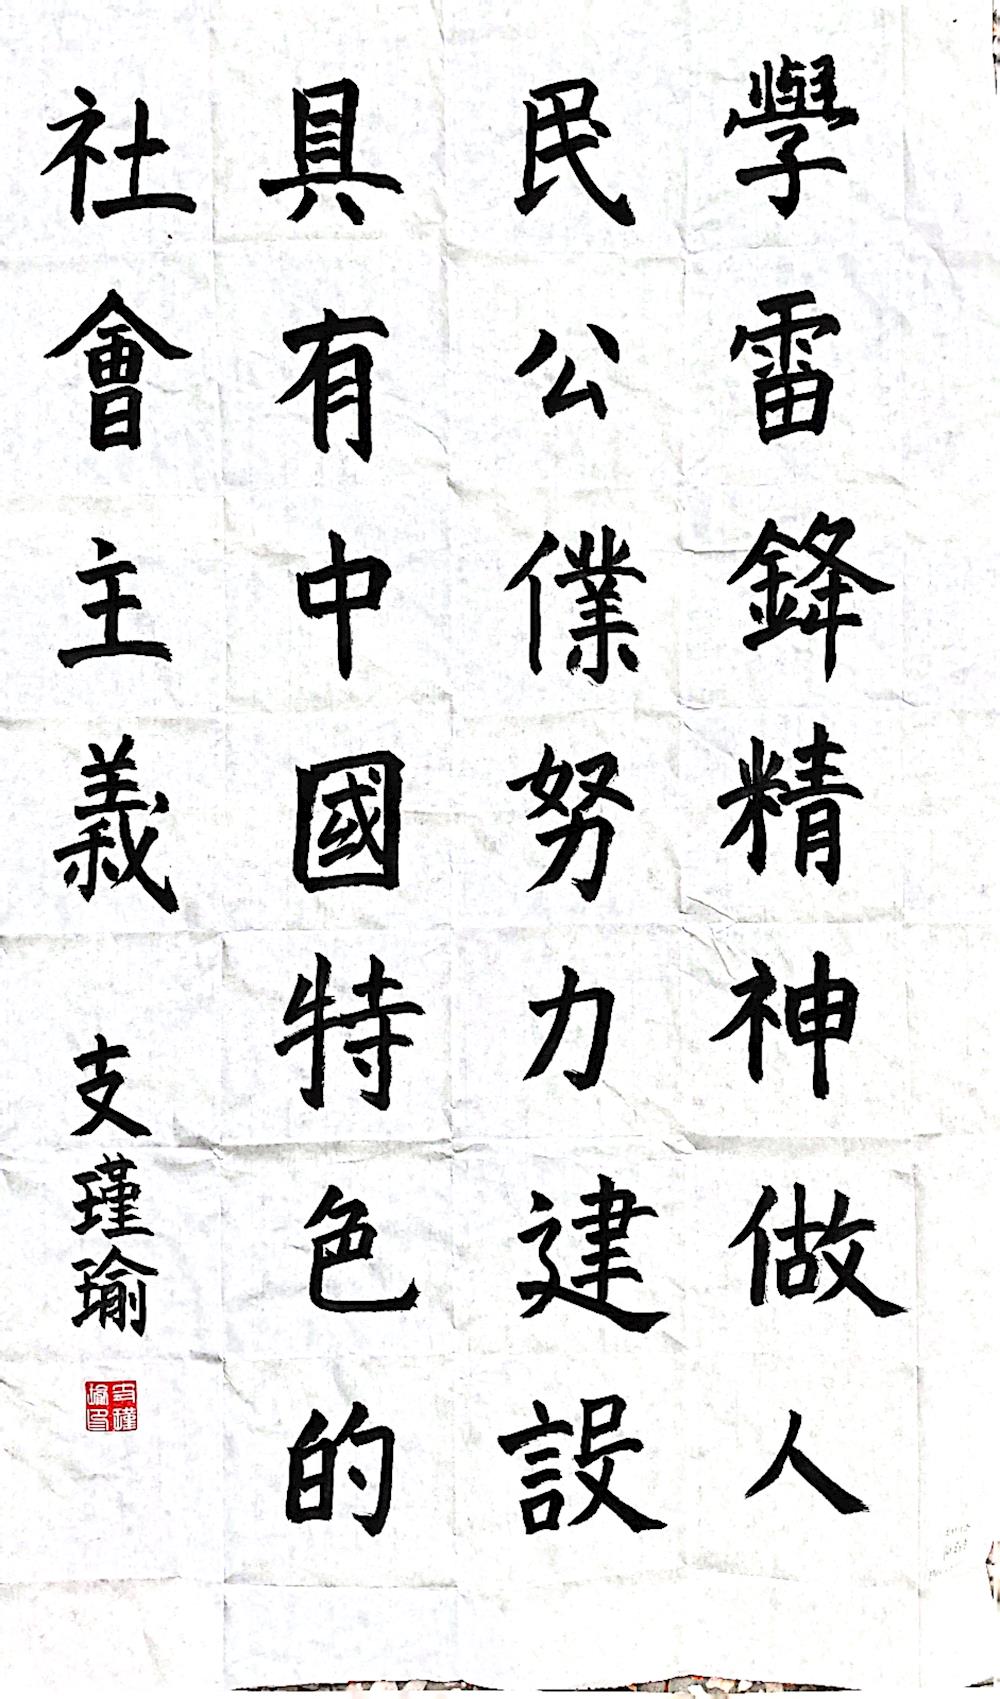 學雷鋒精神做人
民公僕努力建設
具有中國特色的
社會主義
支瑾瑜